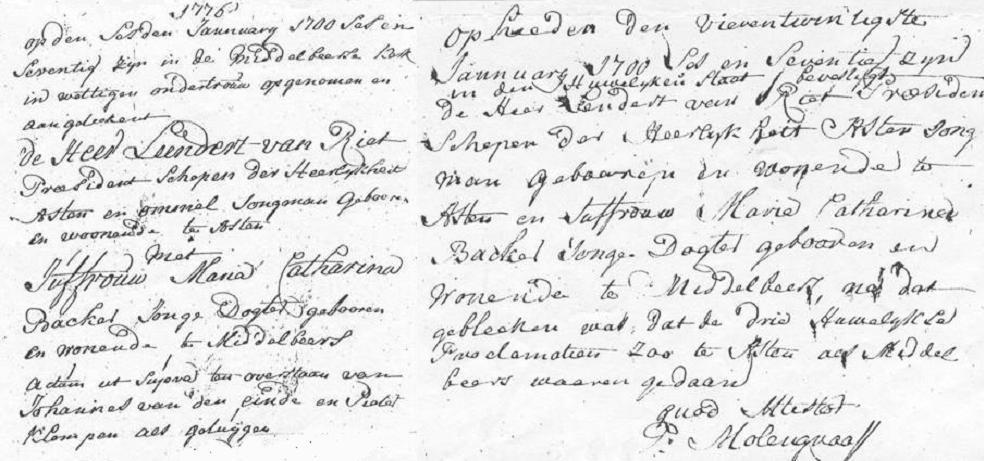 1776
op den Sesden Jannuary 1700 Ses en
Seventig zijn in de Middelbeerse Kerk
in wettigen ondertrouw opgenomen en
aangeteekent
de Heer Lundert van Riet
Præsident Schepen der Heerlijkheit
Asten en ommel Jongman Geboore
en woonende te Asten
met
Juffrouw Maria Catharina
Backer Jonge Dogter gebooren
en wonende te Middelbeers
Actum ut Supra ten overstaan van
Johannes van den einde en Pieter
Klompen als getuijgen
Op heeden den vierentwintigste
Jannuary 1700 Ses en Seventig zijn
in den Huwelyken Staat bevestigt
de Heer Lendert van Riet Præsident
Schepen der Heerlyk heit Asten Jong
man gebooren en wonende te
Asten en Juffrouw Maria Catharina
Backer Jonge Dogter gebooren en
wonende te Middelbeers, na dat
gebleeken was dat de drie Huwelykse
Proclamatien zoo te Asten als Middel
beers waaren gedaan
quod Attestor
P. Molengraaff